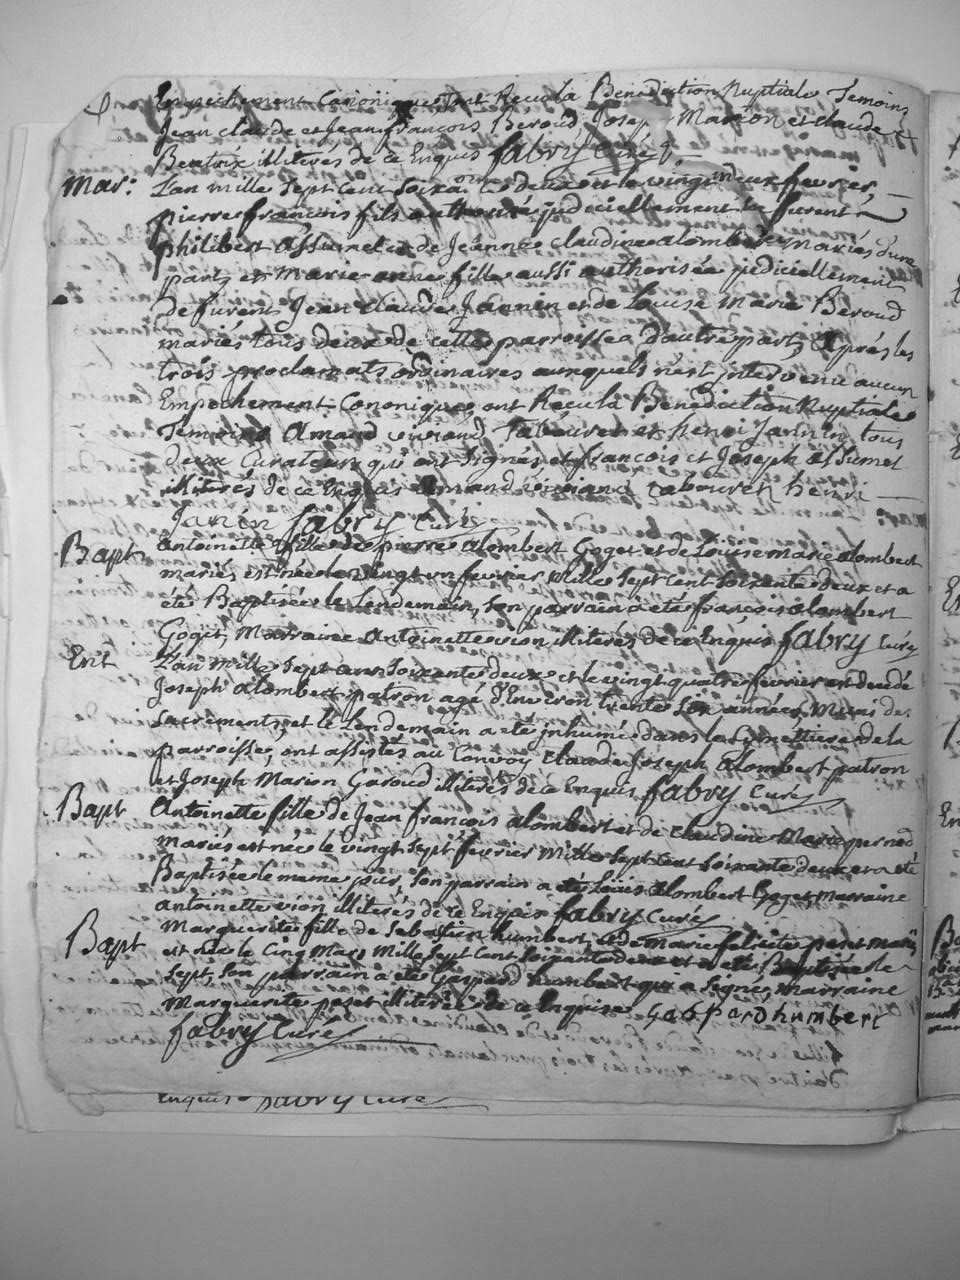 Empechement Canonique, ont Recu la Benediction Nuptiale Temoins
Jean claude et Jean francois Béroud Joseph Marion et claude
Beatrix illiterés de ce Enquis fabry Curé
Mar: L'an mille sept cent soixante deux et le vingt deux fevrier
pierre francois fils authorisé judiciellement de furent
philibert assumel et de Jeanne claudine alombert mariés d'une
part, et Marie anne fille aussi authorisée judiciellement
de furent Jean claude Jannin et de Louise Marie Béroud
mariés tous deux de cette parroisse d'autre part, Après les
trois proclamats ordinaires auxquels n'est intervenu aucun
Empechement Cononique, ont Recu la Benediction Nuptiale
Temoins Amand Tabouret et henri Jannin tous
deux Curateurs qui ont signés, et francois et Joseph assumel
illiterés de ce Enquis Amand tabouret henri
Janin fabry Curé
Bapt Antoinette fille de pierre alombert Goget et de Louise marie alombert
mariés est née le vingt un fevrier mille sept cent soixante deux et a
été Baptisée le Lendemain, son parrain a été francois alombert
Goget, Marraine Antoinette vion illiterés de ce Enquis fabry Curé
Ent L'an mille sept cent soixante deux et le vingt quatre fevrier est decedé
Joseph alombert patron agé d'Environ trente six années Muni des
sacrements, et le Lendemain a été inhumé dans le Cimettiere de la
parroisse, ont assistés au Convoy claude Joseph alombert patron
et Joseph Marion Garoud illiterés de ce Enquis fabry Curé
Bapt Antoinette fille de Jean francois alombert et de claudine Marie
mariés est née le vingt sept fevrier Mille sept cent soixante deux et a été
Baptisée le meme jour, son parrain a été Louis alombert Goget marraine
antoinette vion illiterés de ce Enquis fabry Curé
Bapt Marguerite fille de Sebastien humbert et de Marie felicité penet mariés
est née le Cinq Mars Mille sept cent soixante deux et a été Baptisée le
sept, son parrain a été Gaspard humbert qui a signé, marraine
Marguerite penet illiterée de ce Enquise Gaspard humbert
fabry Curé
Enquise fabry Curé